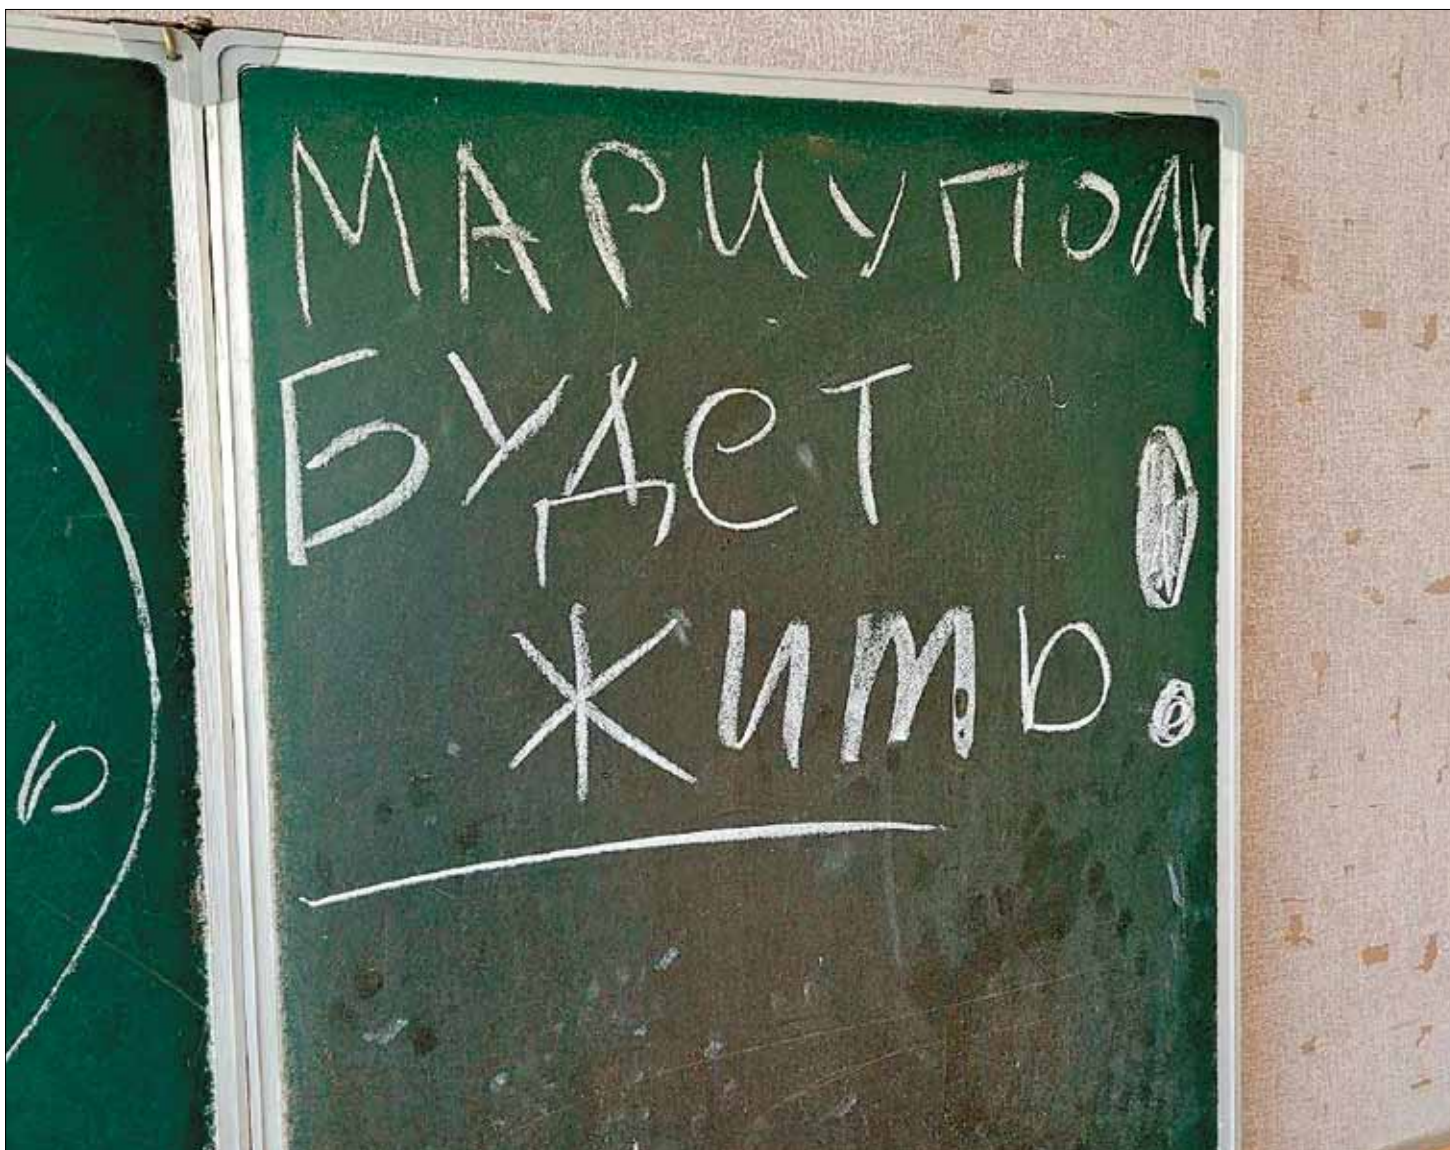 МАРИУПОЛЬ
БУДеТ
ЖИТЬ!